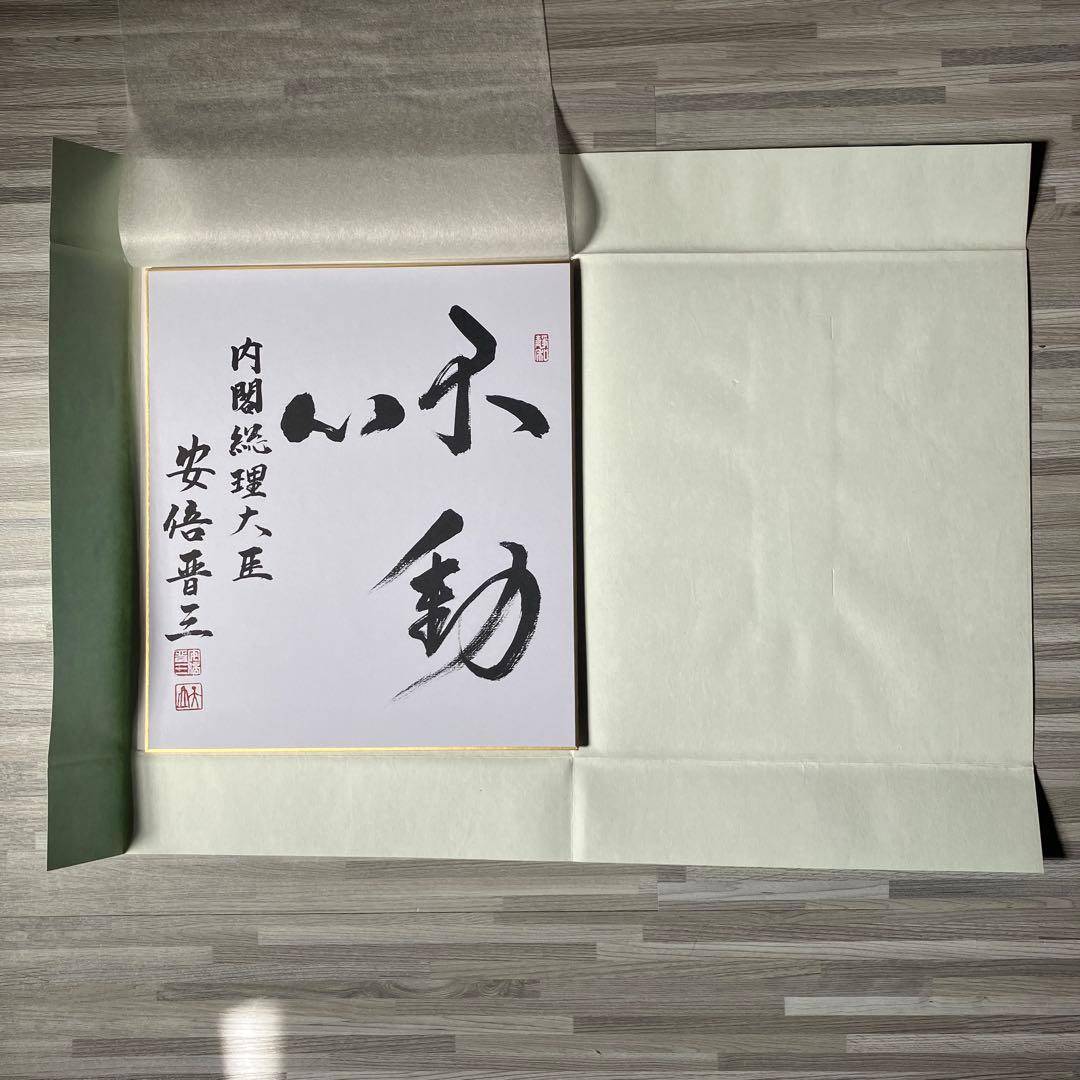 不動
心
内閣総理大臣
安倍晋三